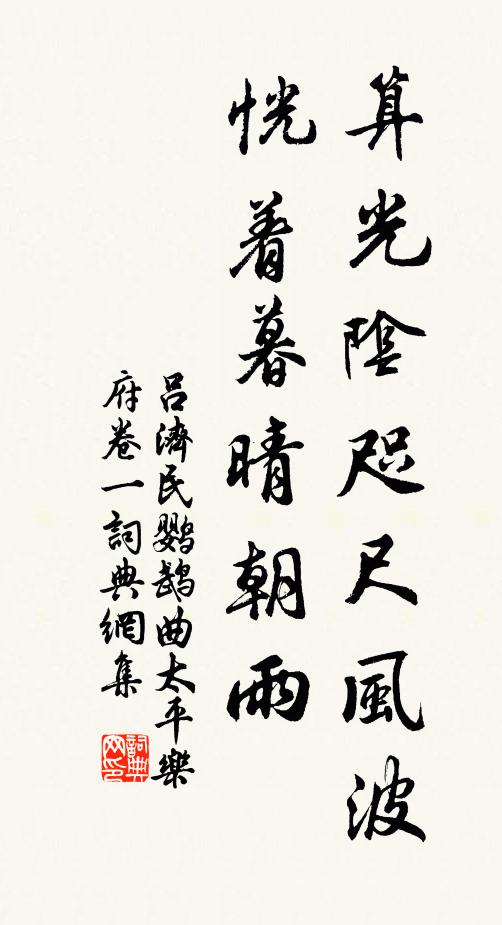 算光陰咫尺風波
恍着暮晴朝雨
呂濟民鸚鵡曲太平樂
府卷一詞典網集
詞典
网印